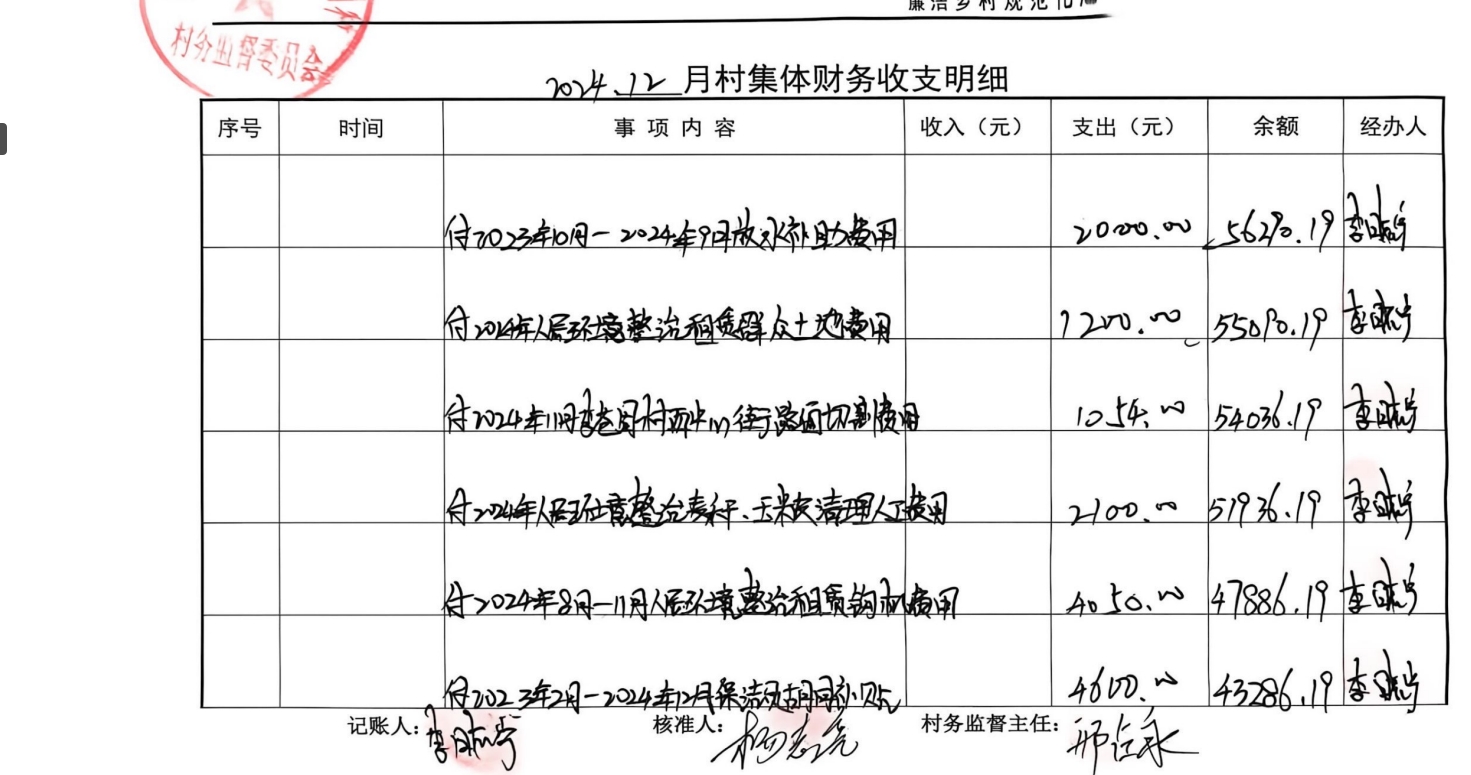 廉洁乡村规范化
村务监督委员会
2024.12月村集体财务收支明细
序号 时间 事项内容 收入（元） 支出（元） 余额 经办人
付2023年10月-2024年9月放水补助费用 2000.00 56290.19
付2024年人居环境整治租赁群众土地费用 1200.00 55090.19
付2024年11月 村西 街路面切割费用 1054.00 54036.19
付2024年人居环境整治麦秆、玉米皮清理人工费用 2100.00 51936.19
付2024年8月-11月人居环境整治租赁钩机费用 4050.00 47886.19
付2023年2月-2024年12月保洁员 补贴 4600.00 43286.19
记账人： 核准人： 村务监督主任：